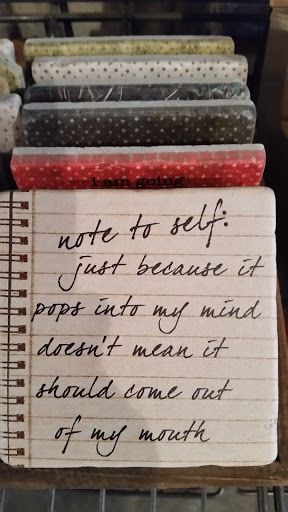 I am going
note to self:
just because it
pops into my mind
doesn't mean it
should come out
of my mouth